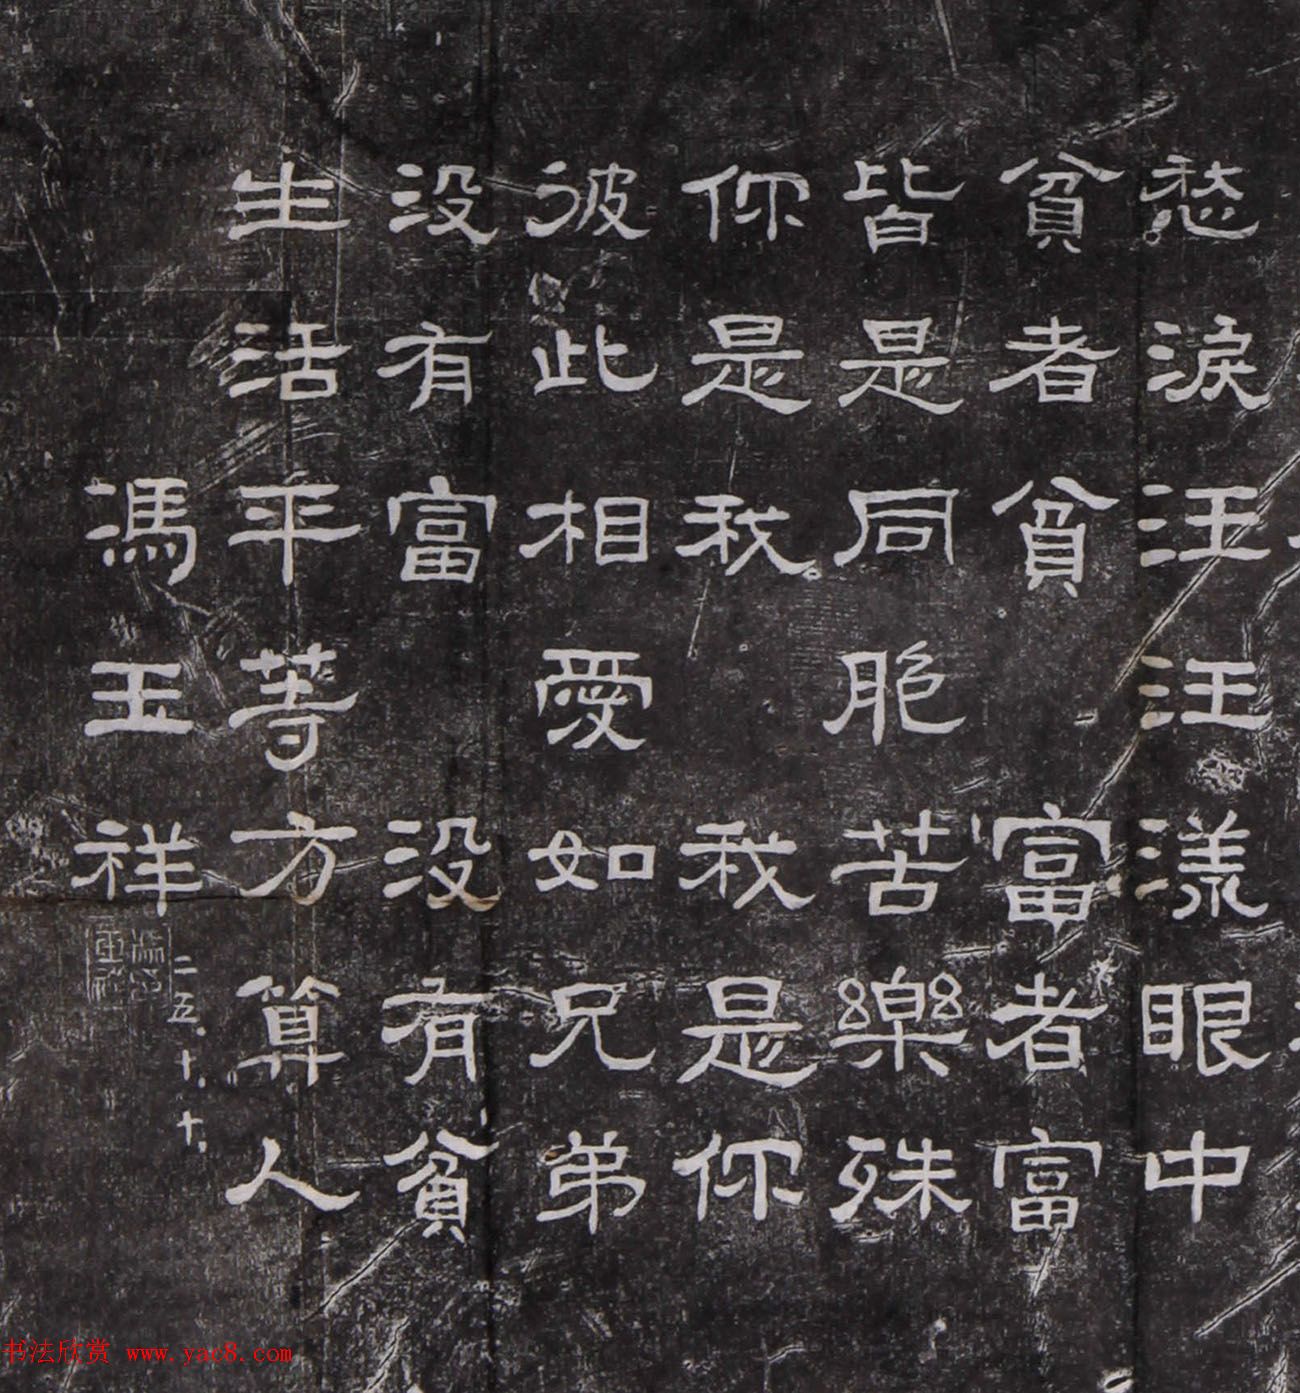 愁淚汪汪漾眼中
貧者貧 富者富
皆是同胞苦樂殊
你是我 我是你
彼此相愛如兄弟
没有富 没有貧
生活平等方算人
馮玉祥
二五.十.十.
馮玉祥
书法欣赏 www.yac8.com